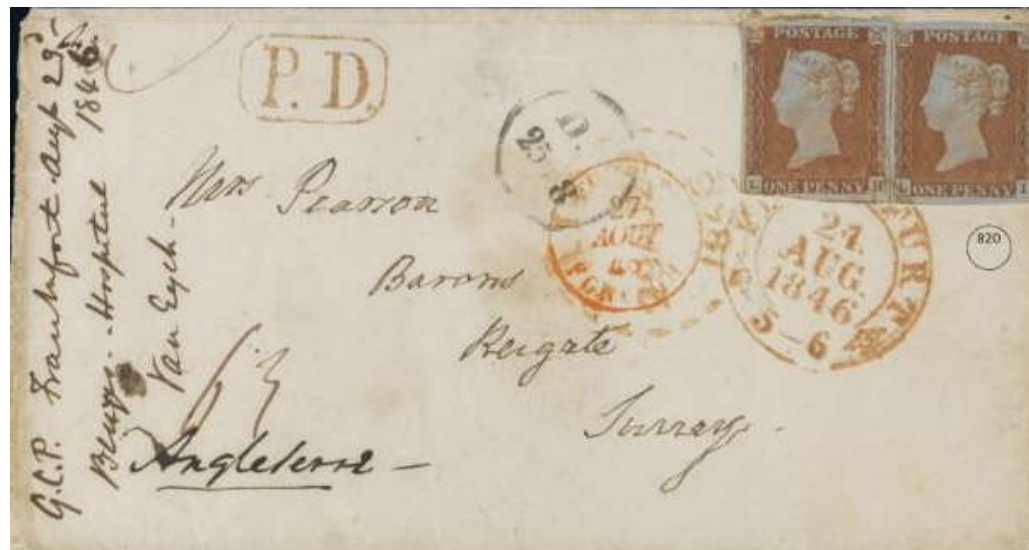 G.C.P. Frankfort Augt 23d 1846
Bruges - Hospital
Van Eych -
P. D.
POSTAGE
ONE PENNY
POSTAGE
ONE PENNY
D.
25
8
AOUT
21
AUG
1846
5-6
820
Mrs Pearson
Barons
Reigate
Surrey -
63
Angleterre -